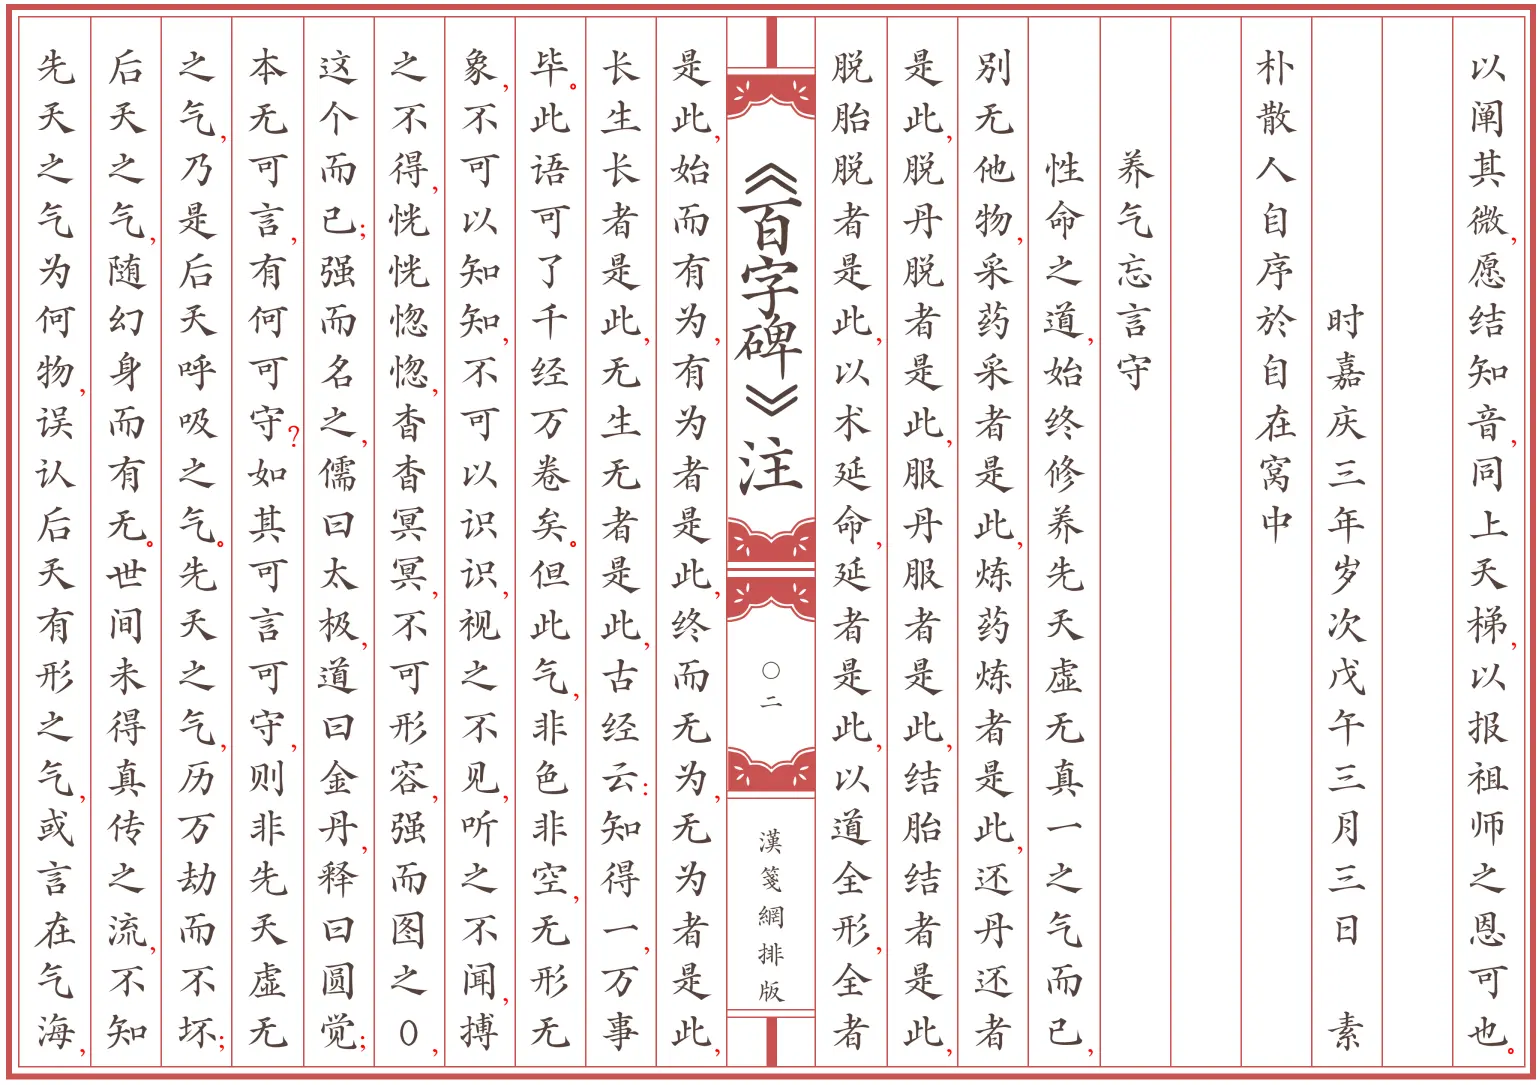 以阐其微，愿结知音，同上天梯，以报祖师之恩可也。
时嘉庆三年岁次戊午三月三日　素
朴散人自序於自在窝中
养气忘言守
性命之道，始终修养先天虚无真一之气而已，
别无他物，采药采者是此，炼药炼者是此，还丹还者
是此，脱丹脱者是此，服丹服者是此，结胎结者是此，
脱胎脱者是此，以术延命，延者是此，以道全形，全者
《百字碑》注
〇二
漢箋網排版
是此，始而有为，有为者是此，终而无为，无为者是此，
长生长者是此，无生无者是此，古经云：知得一，万事
毕。此语可了千经万卷矣。但此气，非色非空，无形无
象，不可以知知，不可以识识，视之不见，听之不闻，搏
之不得，恍恍惚惚，杳杳冥冥，不可形容，强而图之〇，
这个而已；强而名之，儒曰太极，道曰金丹，释曰圆觉；
本无可言，有何可守？如其可言可守，则非先天虚无
之气，乃是后天呼吸之气。先天之气，历万劫而不坏；
后天之气，随幻身而有无。世间未得真传之流，不知
先天之气为何物，误认后天有形之气，或言在气海，